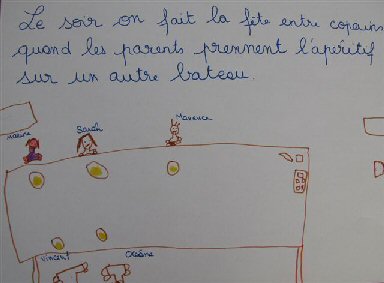 Le soir on fait la fête entre copains
quand les parents prennent l'apéritif
sur un autre bateau.
Maxence
Sarah
Vincent
Océane